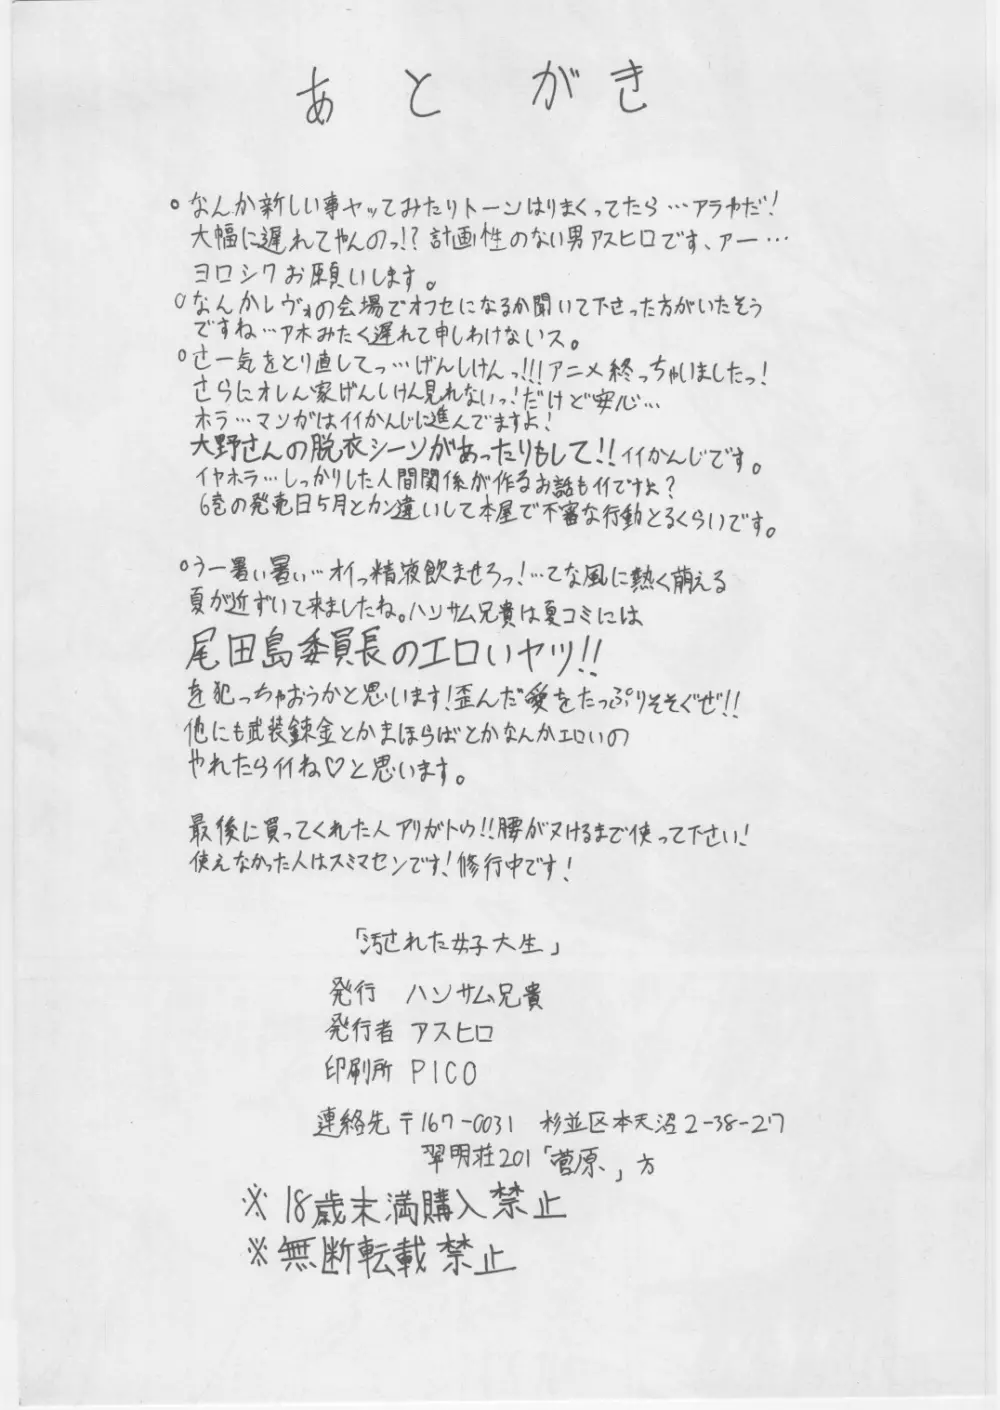 あとがき
○なんか新しい事ヤッてみたりトーンはりまくってたら…アラヤだ!
大幅に遅れてやんのっ!?計画性のない男アスヒロです、アー…
ヨロシクお願いします。
○なんかレヴォの会場でオフセになるか聞いて下さった方がいたそう
ですね…アホみたく遅れて申しわけないス。
○さ一気をとり直してっ…げんしけんっ!!!アニメ終っちゃいましたっ!
さらにオレん家げんしけん見れないっ!だけど安心…
ホラ…マンガはイイかんじに進んでますよ!
大野さんの脱衣シーンがあったりもして!!イイかんじです。
イヤホラ…しっかりした人間関係が作るお話もイイですよ?
6巻の発売日5月とカン違いして本屋で不審な行動とるくらいです。
○うー暑い暑い…オイっ精液飲ませろっ!…てな風に熱く萌える
夏が近ずいて来ましたね。ハンサム兄貴は夏コミには
尾田島委員長のエロいヤツ!!
を犯っちゃおうかと思います!歪んだ愛をたっぷりそそぐぜ!!
他にも武装錬金とかまほらばとかなんかエロいの
やれたらイイね♡と思います。
最後に買ってくれた人アリガトウ!!腰がヌけるまで使って下さい!
使えなかった人はスミマセンです!修行中です!
「汚された女子大生」
発行 ハンサム兄貴
発行者 アスヒロ
印刷所 PICO
連絡先〒167-0031 杉並区本天沼2-38-27
翠明荘201「菅原、」方
※18歳未満購入禁止
※無断転載禁止